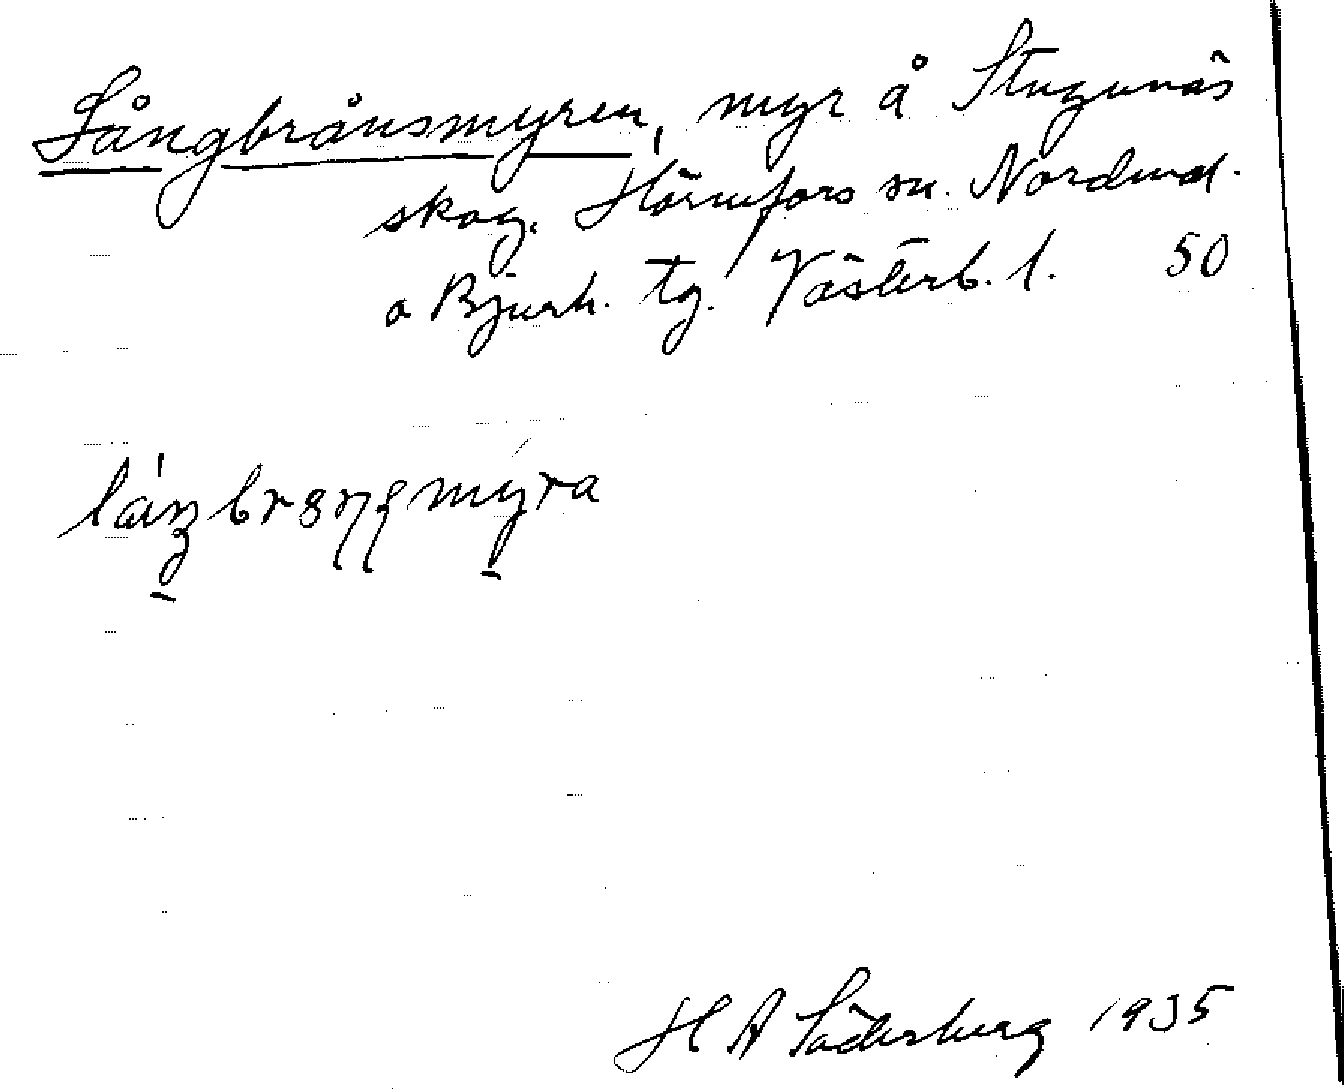 Långbrånsmyren, myr å Stugunäs
skog. Hörnefors sn. Nordmal.
o Bjurh. tg. Västerb. l. 50
H A Söderberg 1935